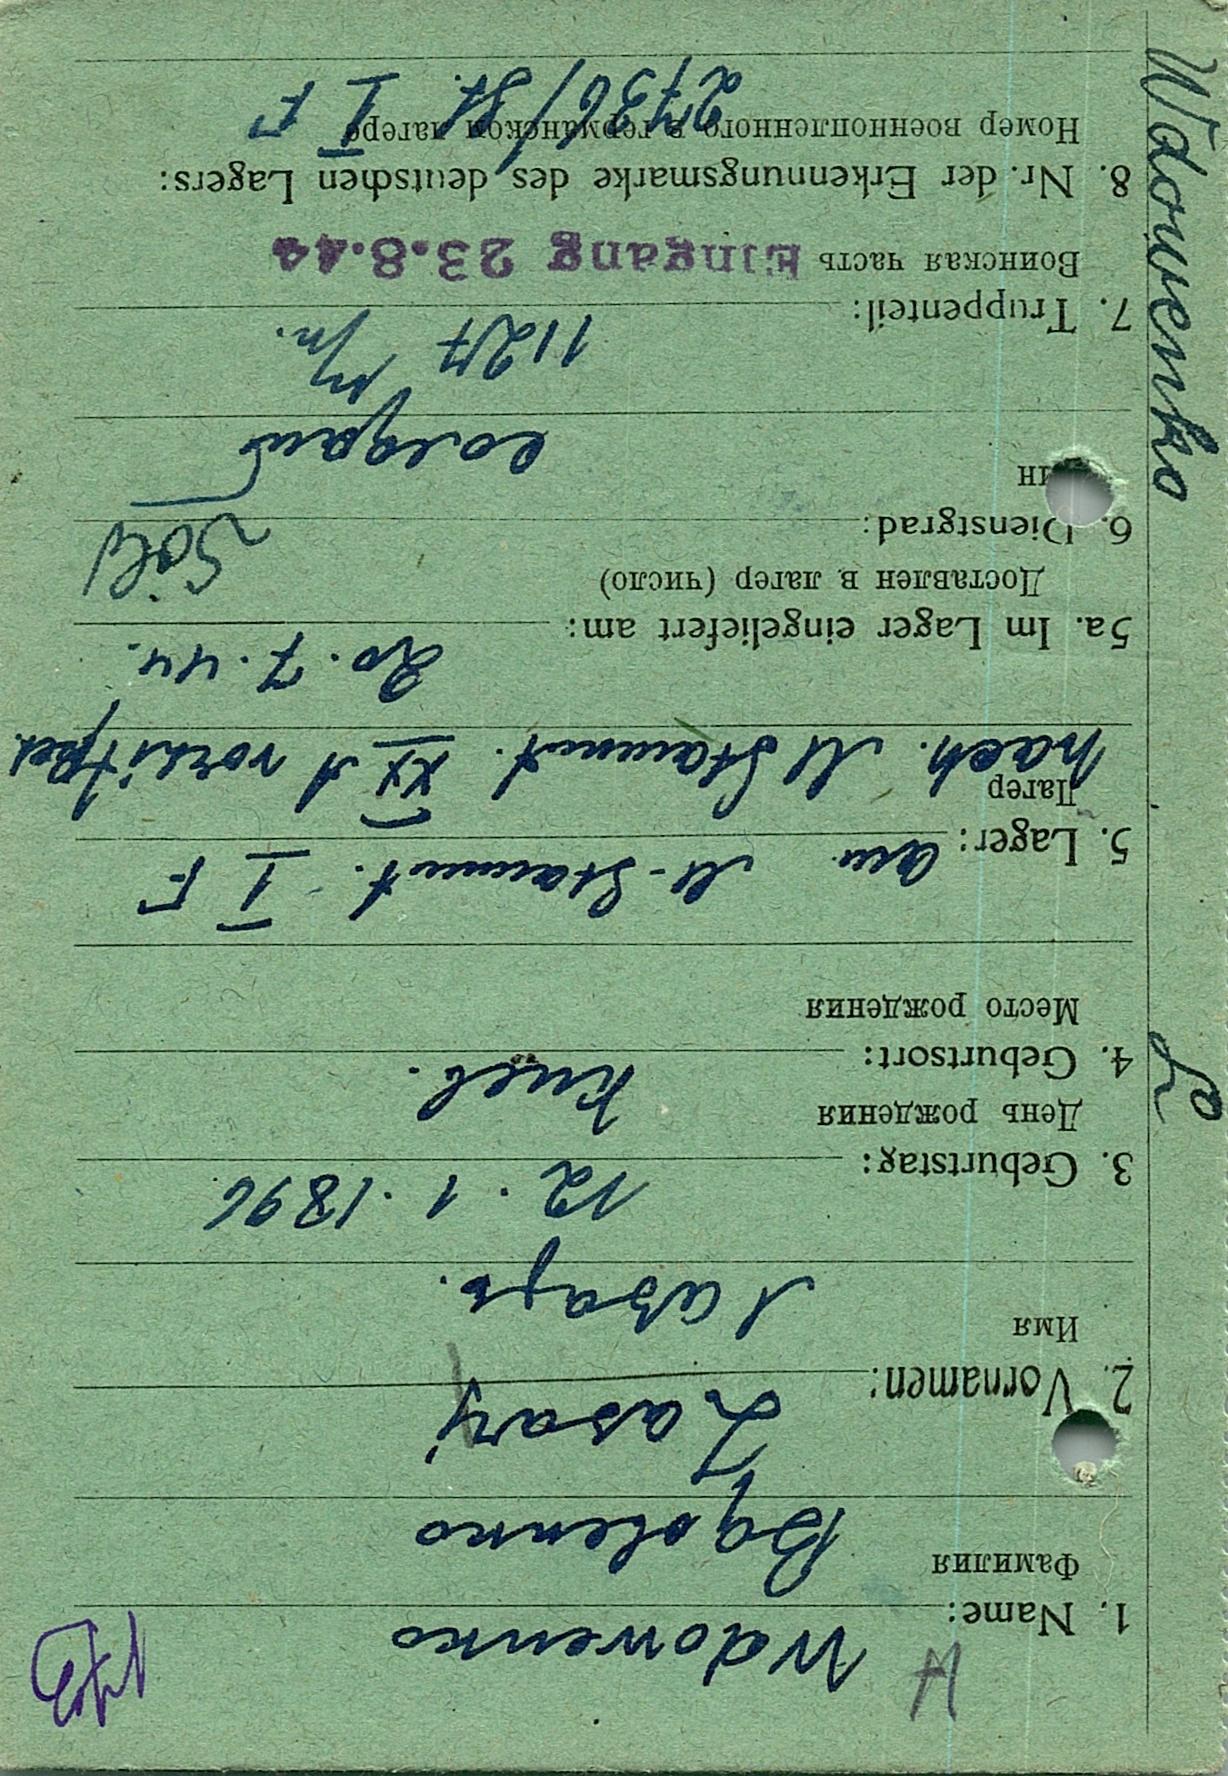 Wdowenko
1. Name: Wdowenko
Фамилия Вдовенко
2. Vornamen: Lasarj
Имя Лазарь.
3. Geburtstag: 12.1.1896
День рождения
4. Geburtsort: Киев.
Место рождения
5. Lager: M-Stammt. I F
Лагер nach M Stammt. XX A
5a. Im Lager eingeliefert am: 20.7.44.
Доставлен в лагер (число)
6. Dienstgrad: Sold
солдат
7. Truppenteil: 1127
Воинская часть Eingang 23.8.44
8. Nr. der Erkennungsmarke des deutschen Lagers:
Номер военнопленного в германском лагере 2736/St. I F